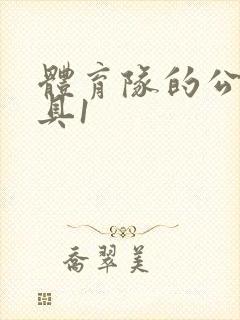 體育隊的公
具1
喬翠美